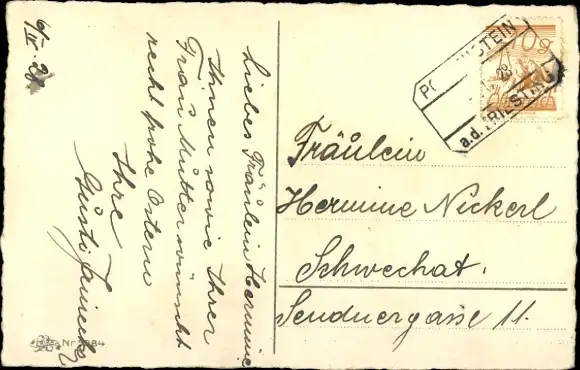 6/IV. 28
Liebes Fräulein Hermine
Ihnen sowie Ihrer
Frau Mutter wünscht
recht frohe Ostern
Ihre
Gusti
Nr 2984
STEIN
a.d. TRIESTING
10g
Fräulein
Hermine Nickerl
Schwechat.
Sendnergasse 11.